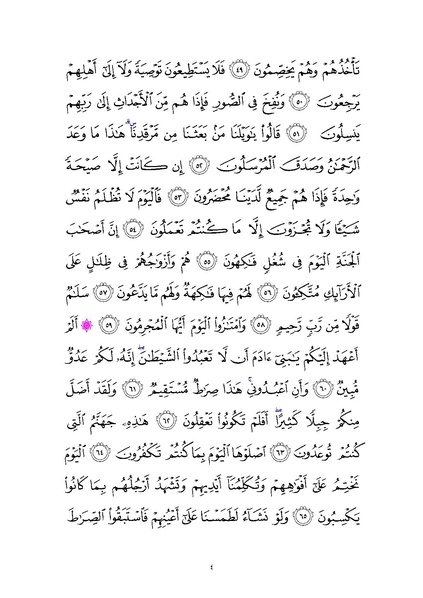 تَأْخُذُهُمْ وَهُمْ يَخِصِّمُونَ ﴿٤٩﴾ فَلَا يَسْتَطِيعُونَ تَوْصِيَةً وَلَآ إِلَىٰٓ أَهْلِهِمْ
يَرْجِعُونَ ﴿٥٠﴾ وَنُفِخَ فِى ٱلصُّورِ فَإِذَا هُم مِّنَ ٱلْأَجْدَاثِ إِلَىٰ رَبِّهِمْ
يَنسِلُونَ ﴿٥١﴾ قَالُوا۟ يَٰوَيْلَنَا مَنۢ بَعَثَنَا مِن مَّرْقَدِنَا ۜ ۗ هَٰذَا مَا وَعَدَ
ٱلرَّحْمَٰنُ وَصَدَقَ ٱلْمُرْسَلُونَ ﴿٥٢﴾ إِن كَانَتْ إِلَّا صَيْحَةً
وَٰحِدَةً فَإِذَا هُمْ جَمِيعٌ لَّدَيْنَا مُحْضَرُونَ ﴿٥٣﴾ فَٱلْيَوْمَ لَا تُظْلَمُ نَفْسٌ
شَيْـًٔا وَلَا تُجْزَوْنَ إِلَّا مَا كُنتُمْ تَعْمَلُونَ ﴿٥٤﴾ إِنَّ أَصْحَٰبَ
ٱلْجَنَّةِ ٱلْيَوْمَ فِى شُغُلٍ فَٰكِهُونَ ﴿٥٥﴾ هُمْ وَأَزْوَٰجُهُمْ فِى ظِلَٰلٍ عَلَى
ٱلْأَرَآئِكِ مُتَّكِـُٔونَ ﴿٥٦﴾ لَهُمْ فِيهَا فَٰكِهَةٌ وَلَهُم مَّا يَدَّعُونَ ﴿٥٧﴾ سَلَٰمٌ
قَوْلًا مِّن رَّبٍّ رَّحِيمٍ ﴿٥٨﴾ وَٱمْتَٰزُوا۟ ٱلْيَوْمَ أَيُّهَا ٱلْمُجْرِمُونَ ﴿٥٩﴾ ۞ أَلَمْ
أَعْهَدْ إِلَيْكُمْ يَٰبَنِىٓ ءَادَمَ أَن لَّا تَعْبُدُوا۟ ٱلشَّيْطَٰنَ ۖ إِنَّهُۥ لَكُمْ عَدُوٌّ
مُّبِينٌ ﴿٦٠﴾ وَأَنِ ٱعْبُدُونِى ۚ هَٰذَا صِرَٰطٌ مُّسْتَقِيمٌ ﴿٦١﴾ وَلَقَدْ أَضَلَّ
مِنكُمْ جِبِلًّا كَثِيرًا ۖ أَفَلَمْ تَكُونُوا۟ تَعْقِلُونَ ﴿٦٢﴾ هَٰذِهِۦ جَهَنَّمُ ٱلَّتِى
كُنتُمْ تُوعَدُونَ ﴿٦٣﴾ ٱصْلَوْهَا ٱلْيَوْمَ بِمَا كُنتُمْ تَكْفُرُونَ ﴿٦٤﴾ ٱلْيَوْمَ
نَخْتِمُ عَلَىٰٓ أَفْوَٰهِهِمْ وَتُكَلِّمُنَآ أَيْدِيهِمْ وَتَشْهَدُ أَرْجُلُهُم بِمَا كَانُوا۟
يَكْسِبُونَ ﴿٦٥﴾ وَلَوْ نَشَآءُ لَطَمَسْنَا عَلَىٰٓ أَعْيُنِهِمْ فَٱسْتَبَقُوا۟ ٱلصِّرَٰطَ
٤